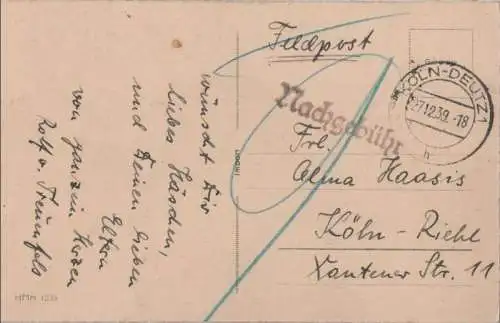 wünscht Dir
liebes Häschen,
und Deinen lieben
Eltern
von ganzem Herzen
Rolf v. Treuenfels
HMH
Feldpost
Nachgebühr
KÖLN-DEUTZ 1
27.12.39.-18
h
Frl.
Alma Haasis
Köln-Riehl
Xantener Str. 11